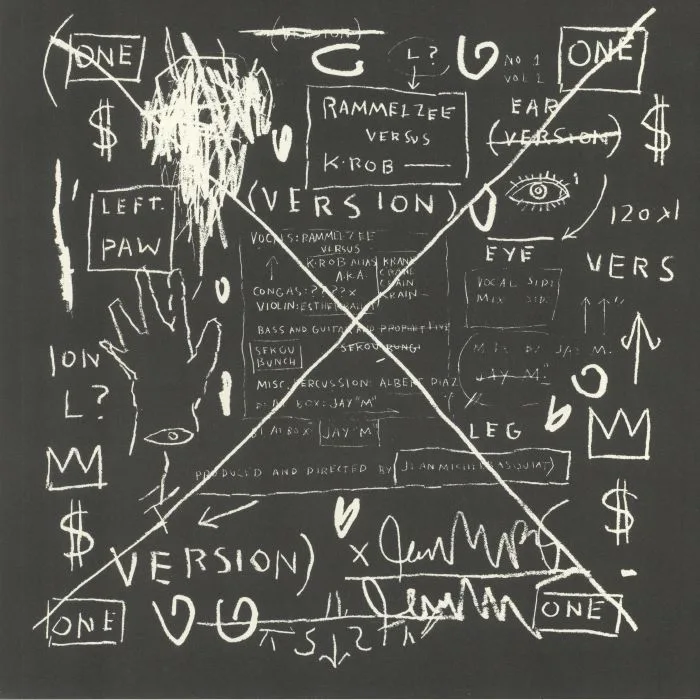 (VERSION)
ONE
L?
NO 1
VOL 2
ONE
$
RAMMELZEE
VERSUS
K-ROB
EAR
(VERSION)
$
LEFT
PAW
(VERSION)
120 x1
EYE
VERS
VOCALS: RAMMELZEE
VERSUS
K-ROB ALIAS
A.K.A.
KRANE
CRANE
CRAIN
KRAIN
VOCAL SIDE
MIX SIDE
CONGAS: ????x
VIOLIN: ESTHER
BASS AND GUITAR AND PROPHET LIVE
SEKOU
BUNCH
SEKOU BUNCH
ION
L?
MISC. PERCUSSION: ALBERT DIAZ
BOX: JAY "M"
JAY "M"
BOX JAY "M"
LEG
PRODUCED AND DIRECTED BY JEAN MICHEL BASQUIAT
$
$
VERSION)
X
ONE
ONE